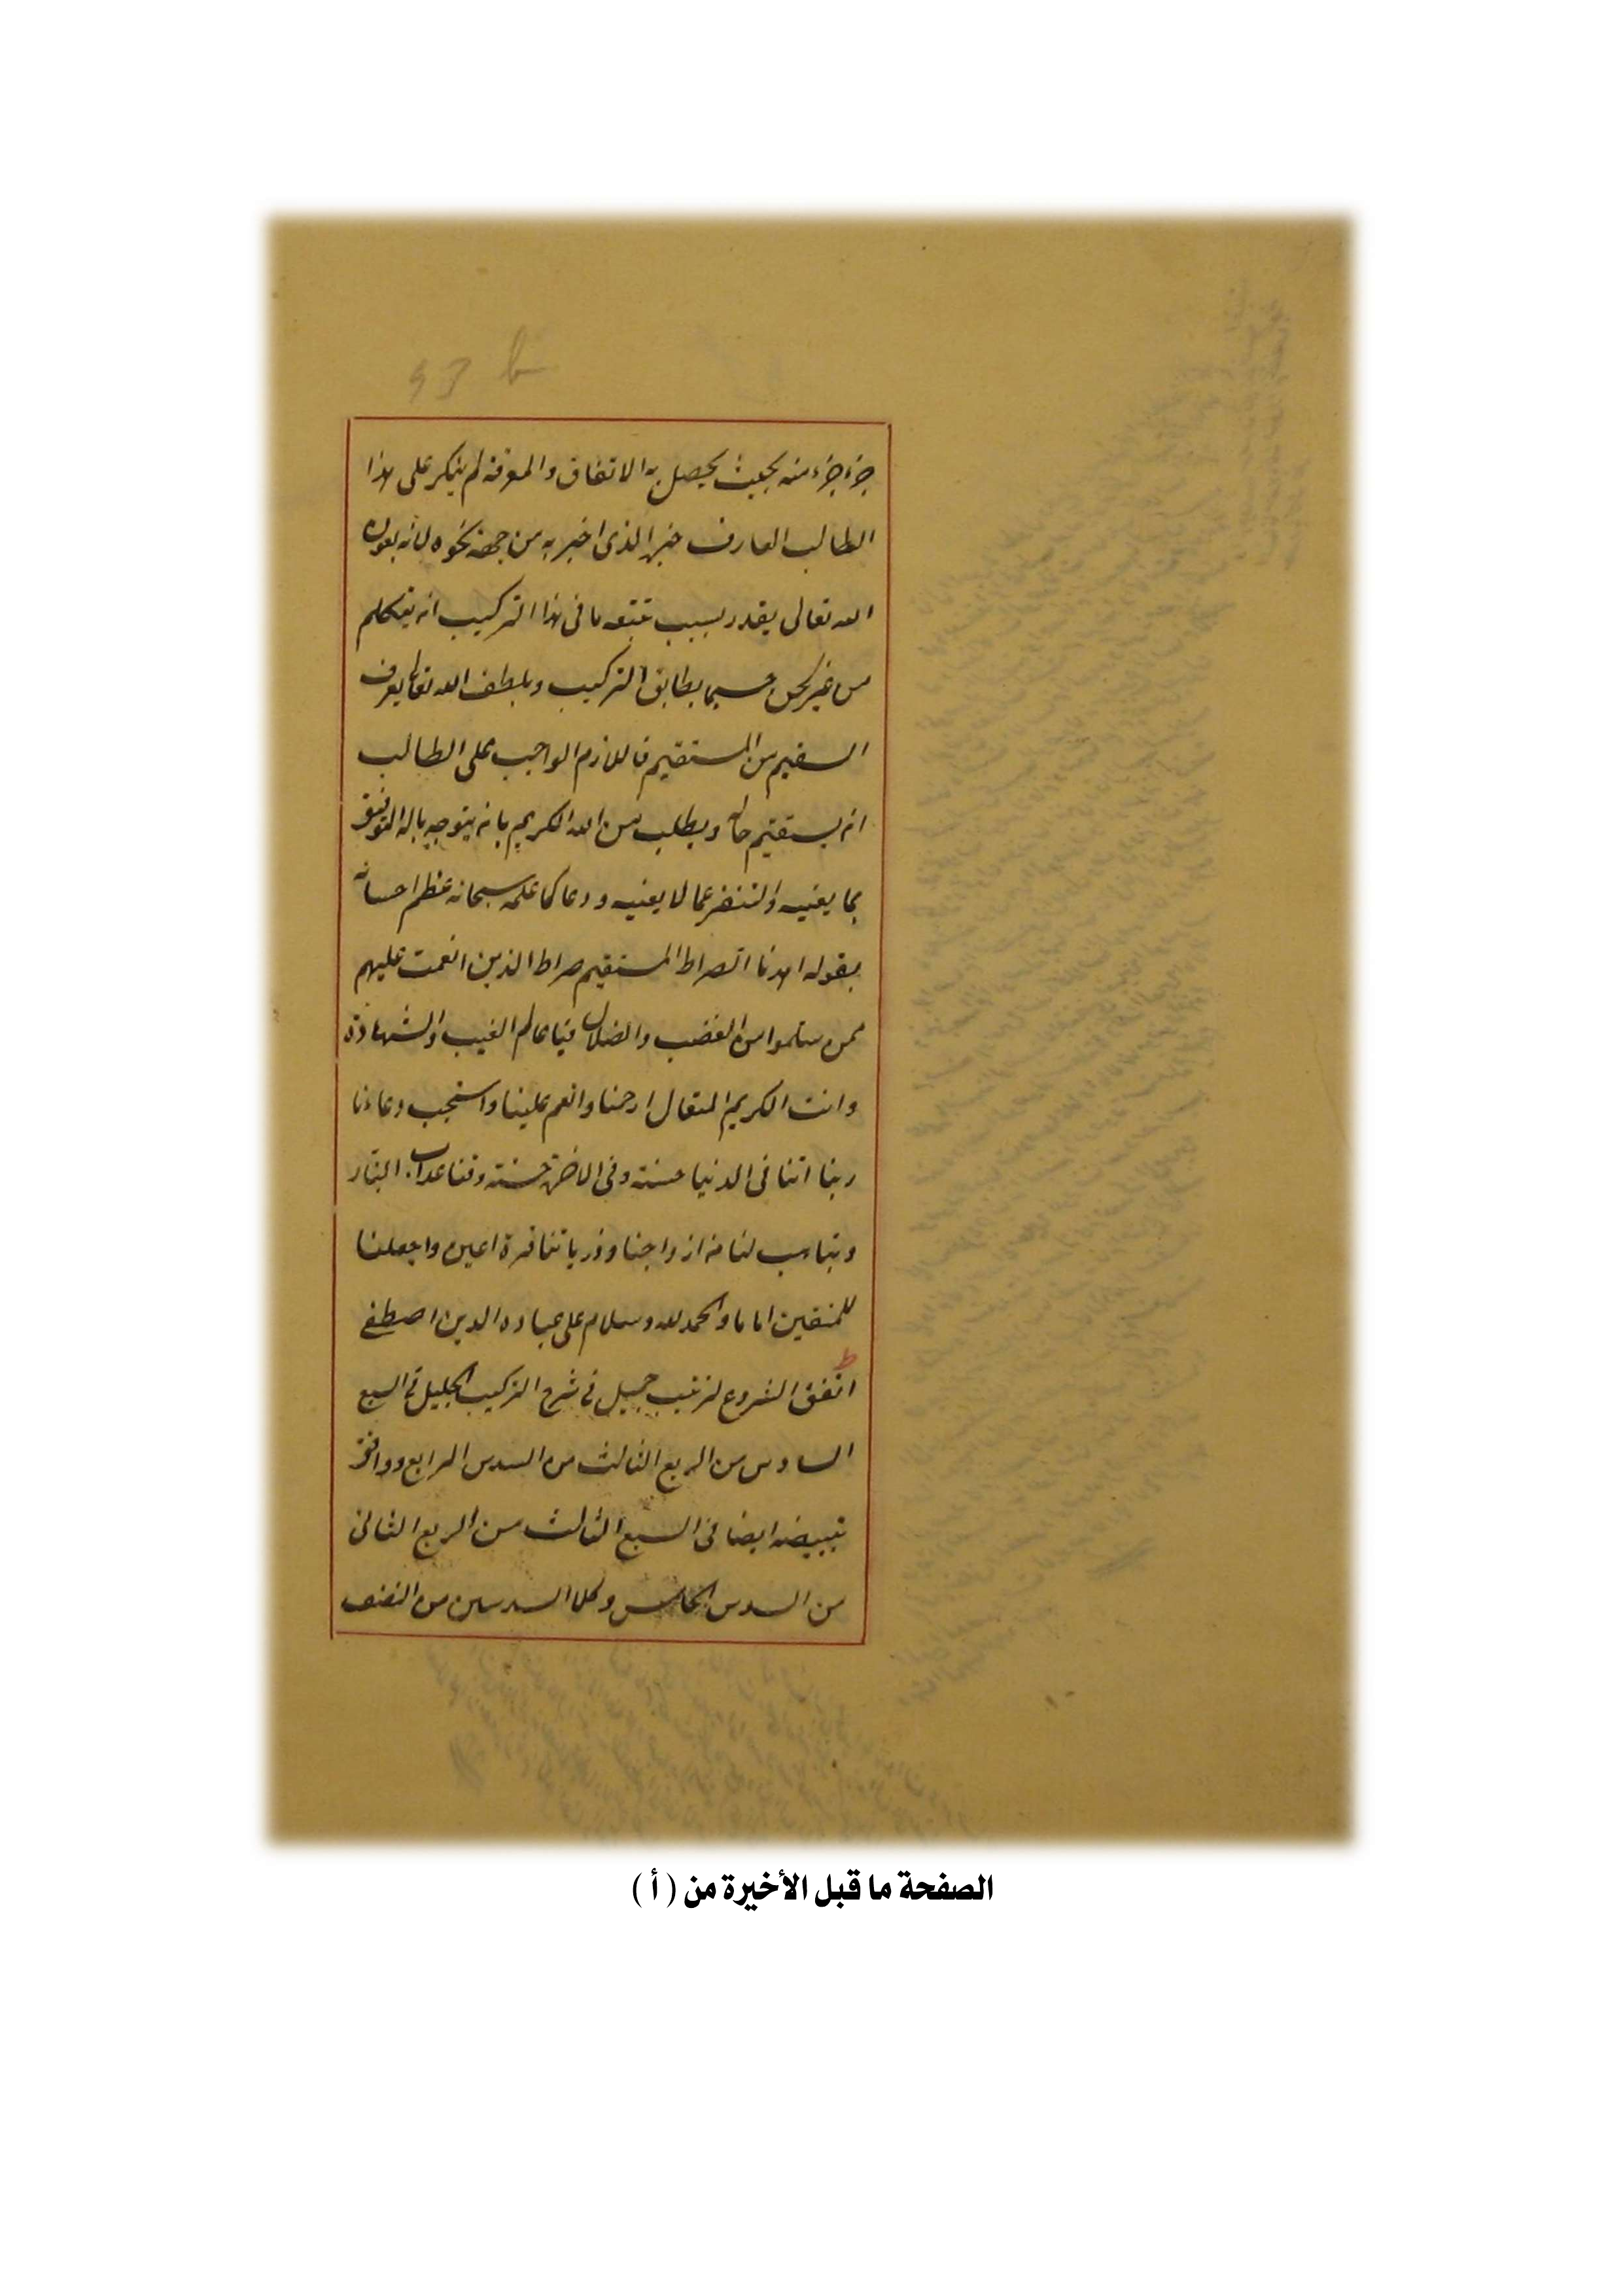 53 b
جزء جزء منه بحيث يحصل به الاتفاق والمعرفة لم ينكر على هذا
الطالب العارف خبره الذى اخبر به من جهة نحوه لانه بعون
الله تعالى يقدر بسبب تتبعه ما فى هذا التركيب ان يتكلم
من غير لحن حسبما يطابق التركيب وبلطف الله تعالى يعرف
السقيم من المستقيم فاللازم الواجب على الطالب
ان يستقيم حاله ويطلب من الله الكريم بان يتوجه باله التوفيق
بما يعنيه والتنفر عما لا يعنيه ودعا كما علمه سبحانه عظم احسانه
بقوله اهدنا الصراط المستقيم صراط الذين انعمت عليهم
ممن سلموا من الغضب والضلال فيا عالم الغيب والشهادة
وانت الكريم المتعال ارحمنا وانعم علينا واستجب دعاءنا
ربنا اتنا فى الدنيا حسنة وفى الاخرة حسنة وقنا عذاب النار
ربنا هب لنا من ازواجنا وذرياتنا قرة اعين واجعلنا
للمتقين اماما والحمد لله وسلام على عباده الذين اصطفى
اتفق الشروع لترتيب جميل فى شرح التركيب الجليل فى السبع
السادس من الربع الثالث من السدس الرابع ووافق
تبييضه ايضا فى السبع الثالث من الربع الثانى
من السدس الخامس وكلا السدسين من النصف
الصفحة ما قبل الأخيرة من ( أ )